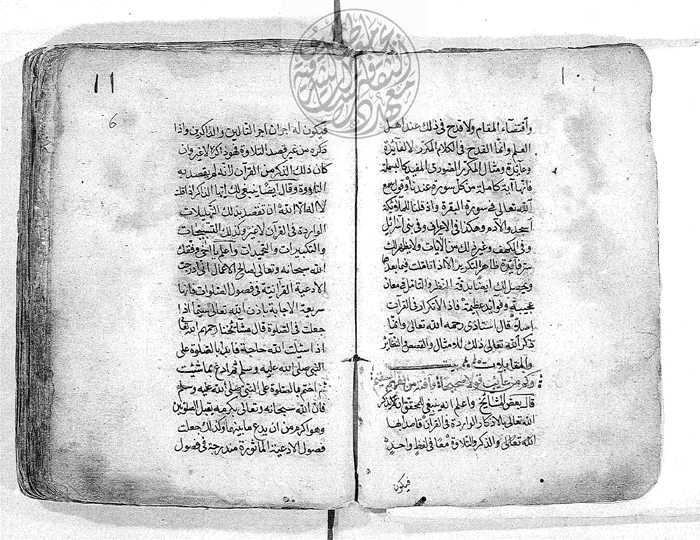 ١٠
واقتضاء المقام ولا قدح في ذلك عند اهل
العلم وانما القدح في الكلام المكرر لا لفائدة
وعايدة ومثال المكرر الضروري المفيد كالبسملة
فانها آية كاملة من كل سورة عندنا وقول مع
الله تعالى في سورة البقرة واذ قلنا للملائكة
اسجدوا لآدم وهكذا في الاعراف وفي بني اسرائل
وفي الكهف وغير ذلك من الآيات ولا يظهر لك
سر فايدة ظاهر التكرير الا اذا تاملت فيما بعد
ويحصل لك ايضا بدقة النظر والتامل في معان
عجيبة وفوائد عظيمة فاذا لا تكرار في القرآن
اصلا قال استاذي رحمه الله تعالى وانما
ذكر الله تعالى ذلك للامثال والقصص والنظاير
والمقابلات
وكم من عايب قولا صحيحا وآفته من الفهم السقيم
قال بعض المشايخ واعلم انه ينبغي للمحقق ان يذكر
الله تعالى بالاذكار الواردة في القرآن قاصدا بها
الله تعالى والذكر والتلاوة معا في لفظ واحد
فيكون
١١
6
فيكون له اجران اجر التالين والذاكرين واذا
ذكره من غير قصد التلاوة فهو ذكر لا غير وان
كان ذلك الذكر من القرآن لانه لم يقصد به
التلاوة وقال ايضا ينبغي لك ايها الذاكر اذا قلت
لا اله الا الله ان تقصد بذلك التهليلات
الواردة في القرآن لا غير وكذلك التسبيحات
والتكبيرات والتحميدات واعلم يا بني وفقك
الله سبحانه وتعالى لصالح الاعمال اني ادرجت
الادعية القرآنية في فصول الصلوات فانها
سريعة الاجابة باذن الله تعالى سيما اذا
جعلت في الصلوة قال مشائخنا رحمهم الله تعالى
اذا سئلت الله حاجة فابدا بالصلوة على
النبي صلى الله عليه وسلم ثم ادع بما شئت
ثم اختم بالصلوة على النبي صلى الله عليه وسلم
فان الله سبحانه وتعالى بكرمه يقبل الصلوتين
وهو اكرم من ان يدع ما بينهما وكذلك جعلت
فصول الادعية المأثورة مندرجة في فصول